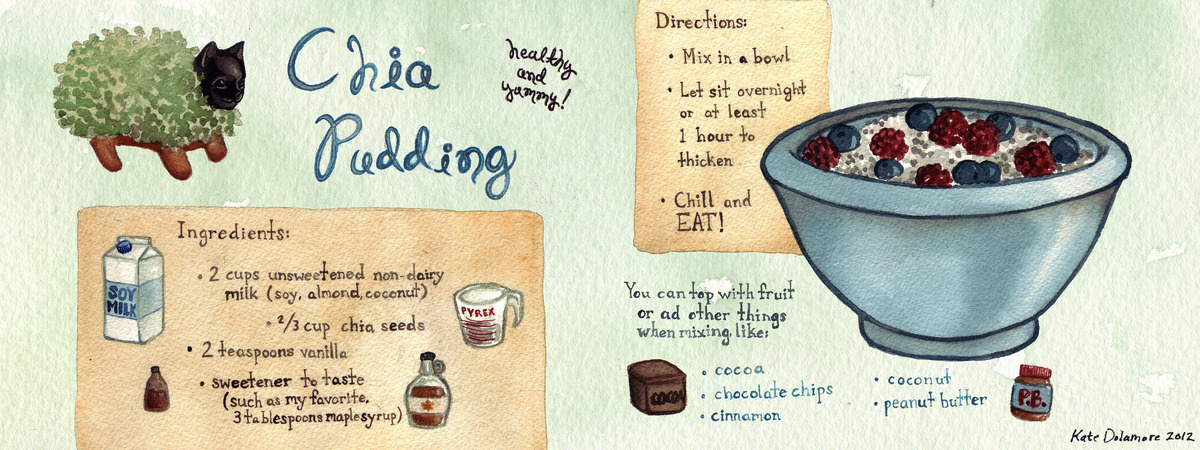 Chia
Pudding
healthy
and
yummy!
Ingredients:
• 2 cups unsweetened non-dairy
milk (soy, almond, coconut)
• 2/3 cup chia seeds
• 2 teaspoons vanilla
• sweetener to taste
(such as my favorite,
3 tablespoons maple syrup)
SOY
MILK
PYREX
Directions:
• Mix in a bowl
• Let sit overnight
or at least
1 hour to
thicken
• Chill and
EAT!
You can top with fruit
or ad other things
when mixing, like:
• cocoa
• chocolate chips
• cinnamon
• coconut
• peanut butter
COCOA
P.B.
Kate Dolamore 2012